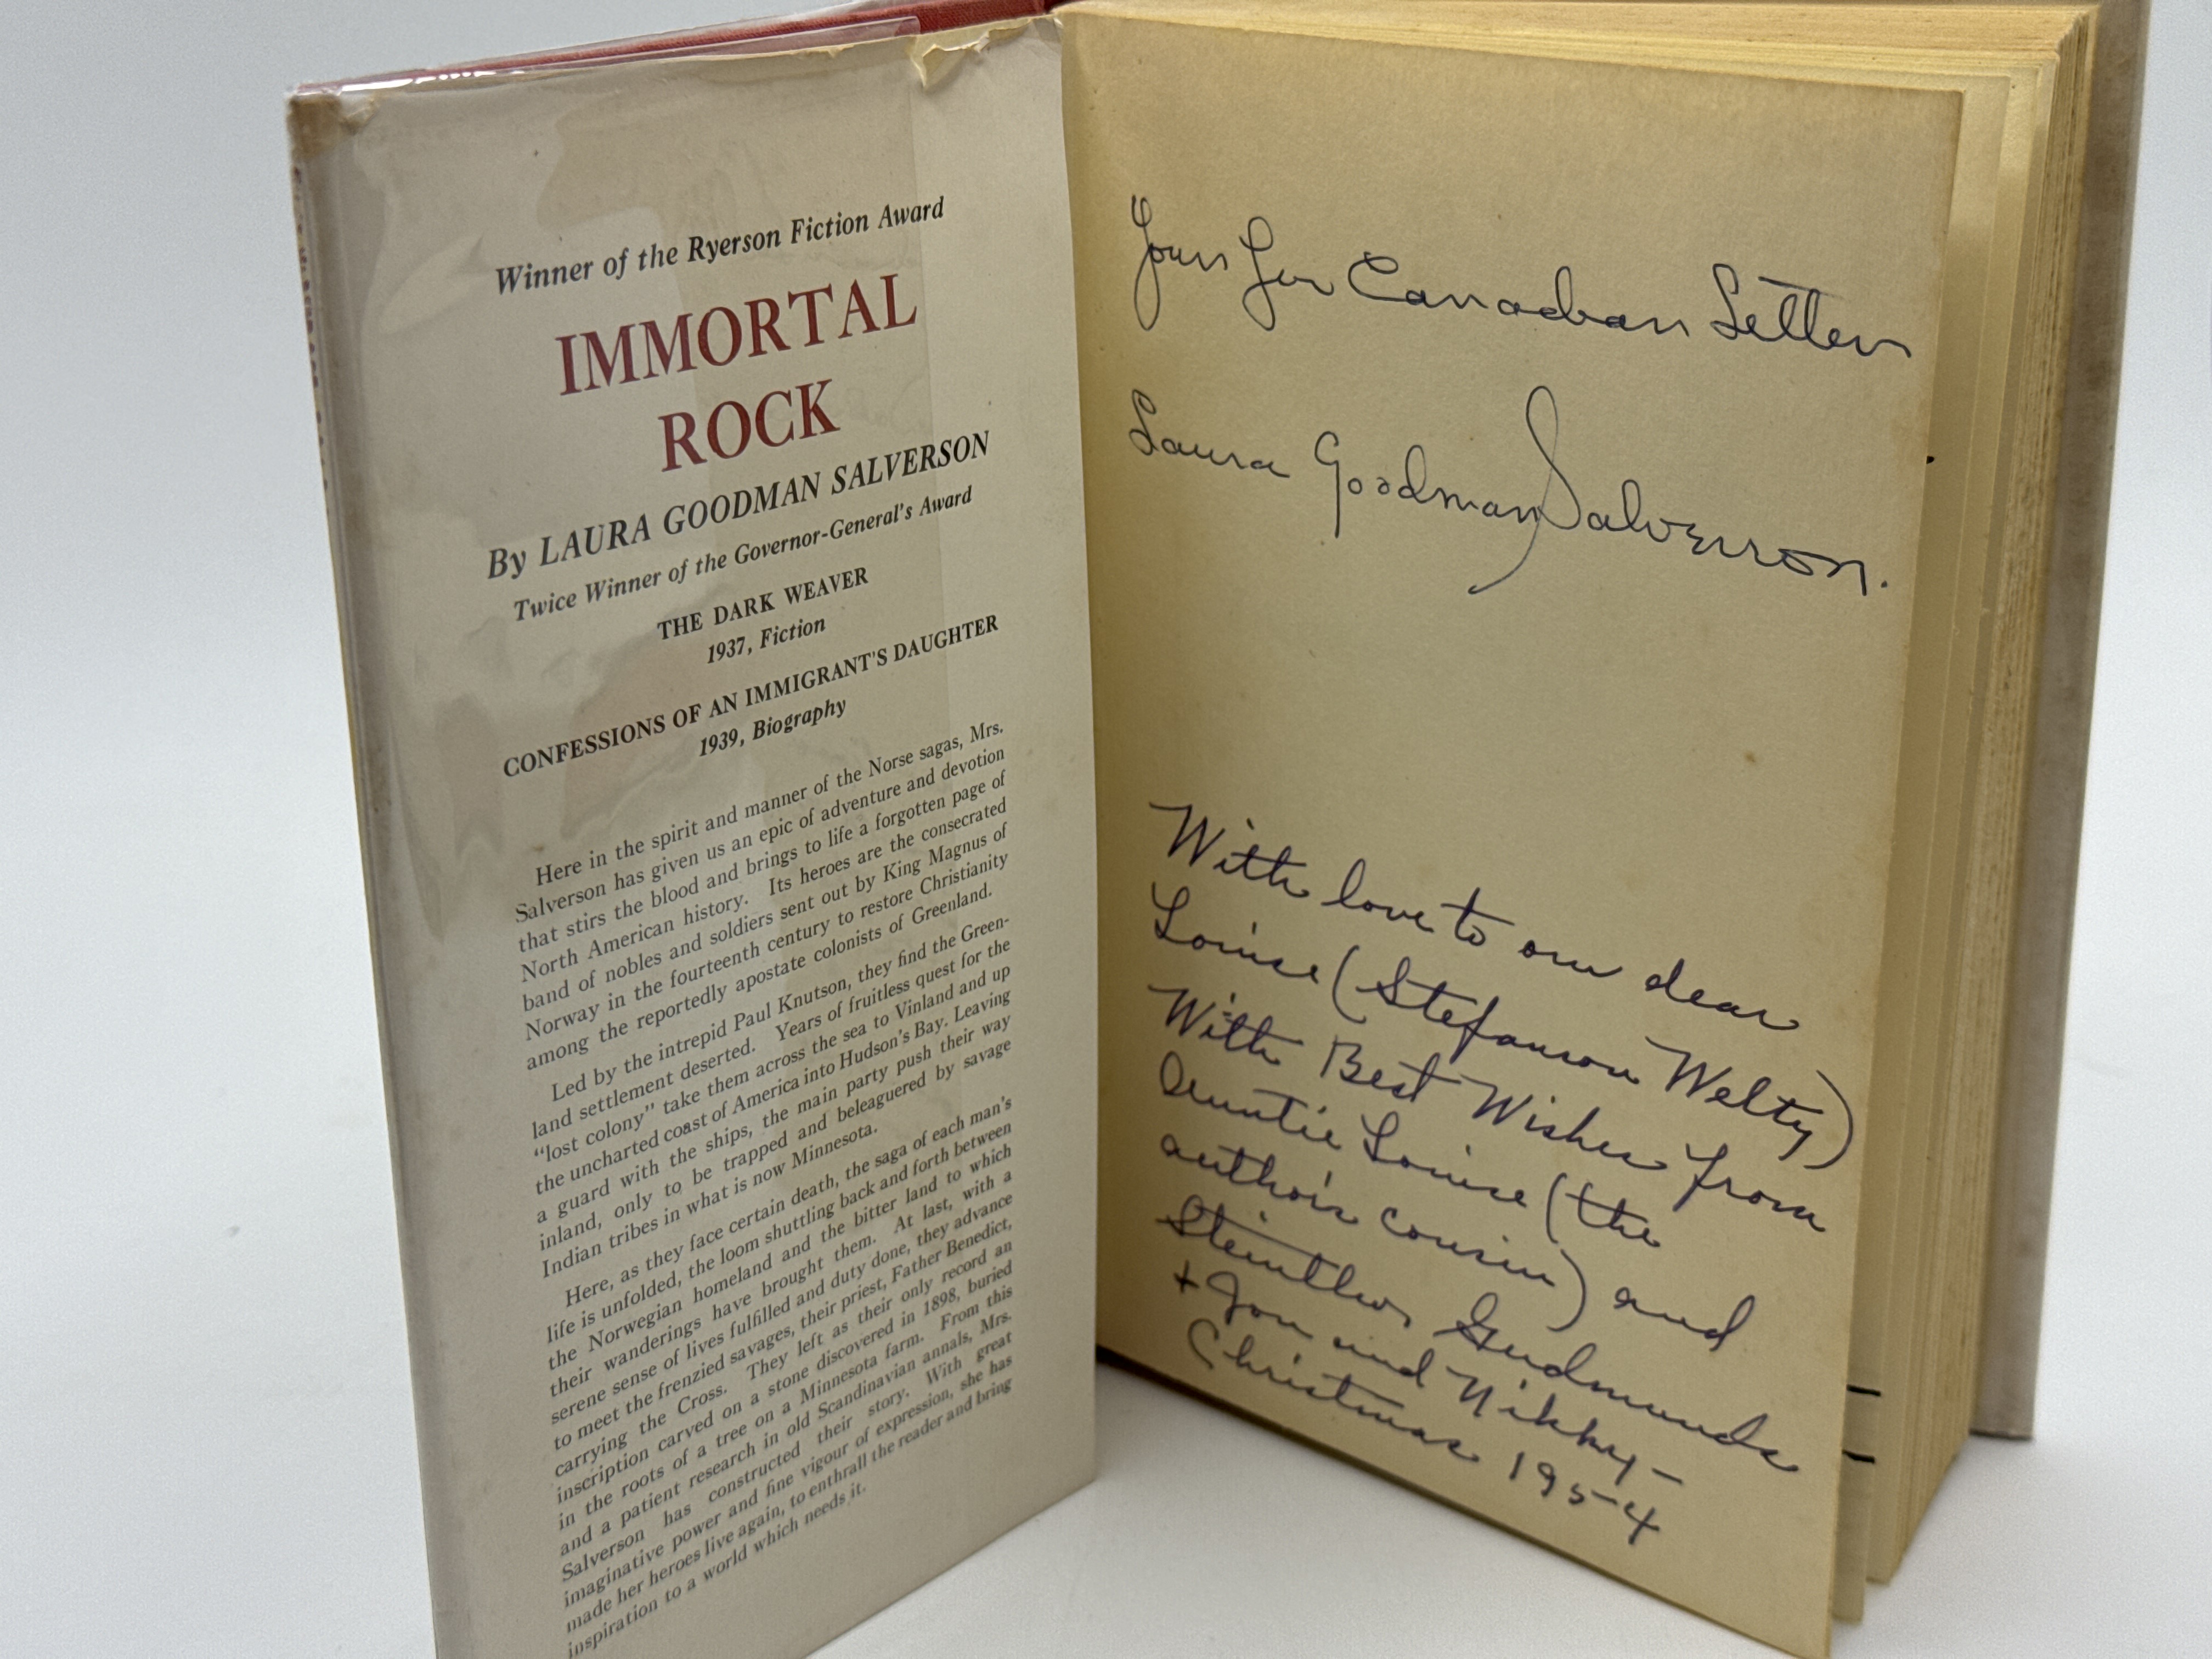 Winner of the Ryerson Fiction Award
IMMORTAL
ROCK
By LAURA GOODMAN SALVERSON
Twice Winner of the Governor-General's Award
THE DARK WEAVER
1937, Fiction
CONFESSIONS OF AN IMMIGRANT'S DAUGHTER
1939, Biography
Here in the spirit and manner of the Norse sagas, Mrs.
Salverson has given us an epic of adventure and devotion
that stirs the blood and brings to life a forgotten page of
North American history. Its heroes are the consecrated
band of nobles and soldiers sent out by King Magnus of
Norway in the fourteenth century to restore Christianity
among the reportedly apostate colonists of Greenland.
Led by the intrepid Paul Knutson, they find the Green-
land settlement deserted. Years of fruitless quest for the
"lost colony" take them across the sea to Vinland and up
the uncharted coast of America into Hudson's Bay. Leaving
a guard with the ships, the main party push their way
inland, only to be trapped and beleaguered by savage
Indian tribes in what is now Minnesota.
Here, as they face certain death, the saga of each man's
life is unfolded, the loom shuttling back and forth between
the Norwegian homeland and the bitter land to which
their wanderings have brought them. At last, with a
serene sense of lives fulfilled and duty done, they advance
to meet the frenzied savages, their priest, Father Benedict,
carrying the Cross. They left as their only record an
inscription carved on a stone discovered in 1898, buried
in the roots of a tree on a Minnesota farm. From this
and a patient research in old Scandinavian annals, Mrs.
Salverson has constructed their story. With great
imaginative power and fine vigour of expression, she has
made her heroes live again, to enthrall the reader and bring
inspiration to a world which needs it.
Yours for Canadian Letters
Laura Goodman Salverson.
With love to our dear
Louise (Stefanson Welty)
With Best Wishes from
Auntie Louise (the
author's cousin) and
Gudmunds
+ Jon and Nikky –
Christmas 1954